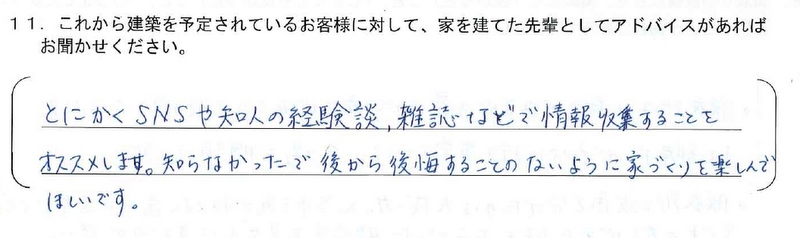 11．これから建築を予定されているお客様に対して、家を建てた先輩としてアドバイスがあれば
お聞かせください。
とにかくSNSや知人の経験談,雑誌などで情報収集することを
オススメします。知らなかったで後から後悔することのないように家づくりを楽しんで
ほしいです。